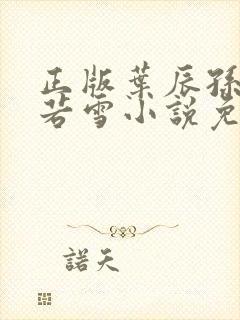 正版葉辰孫
若雪小說免
諾天